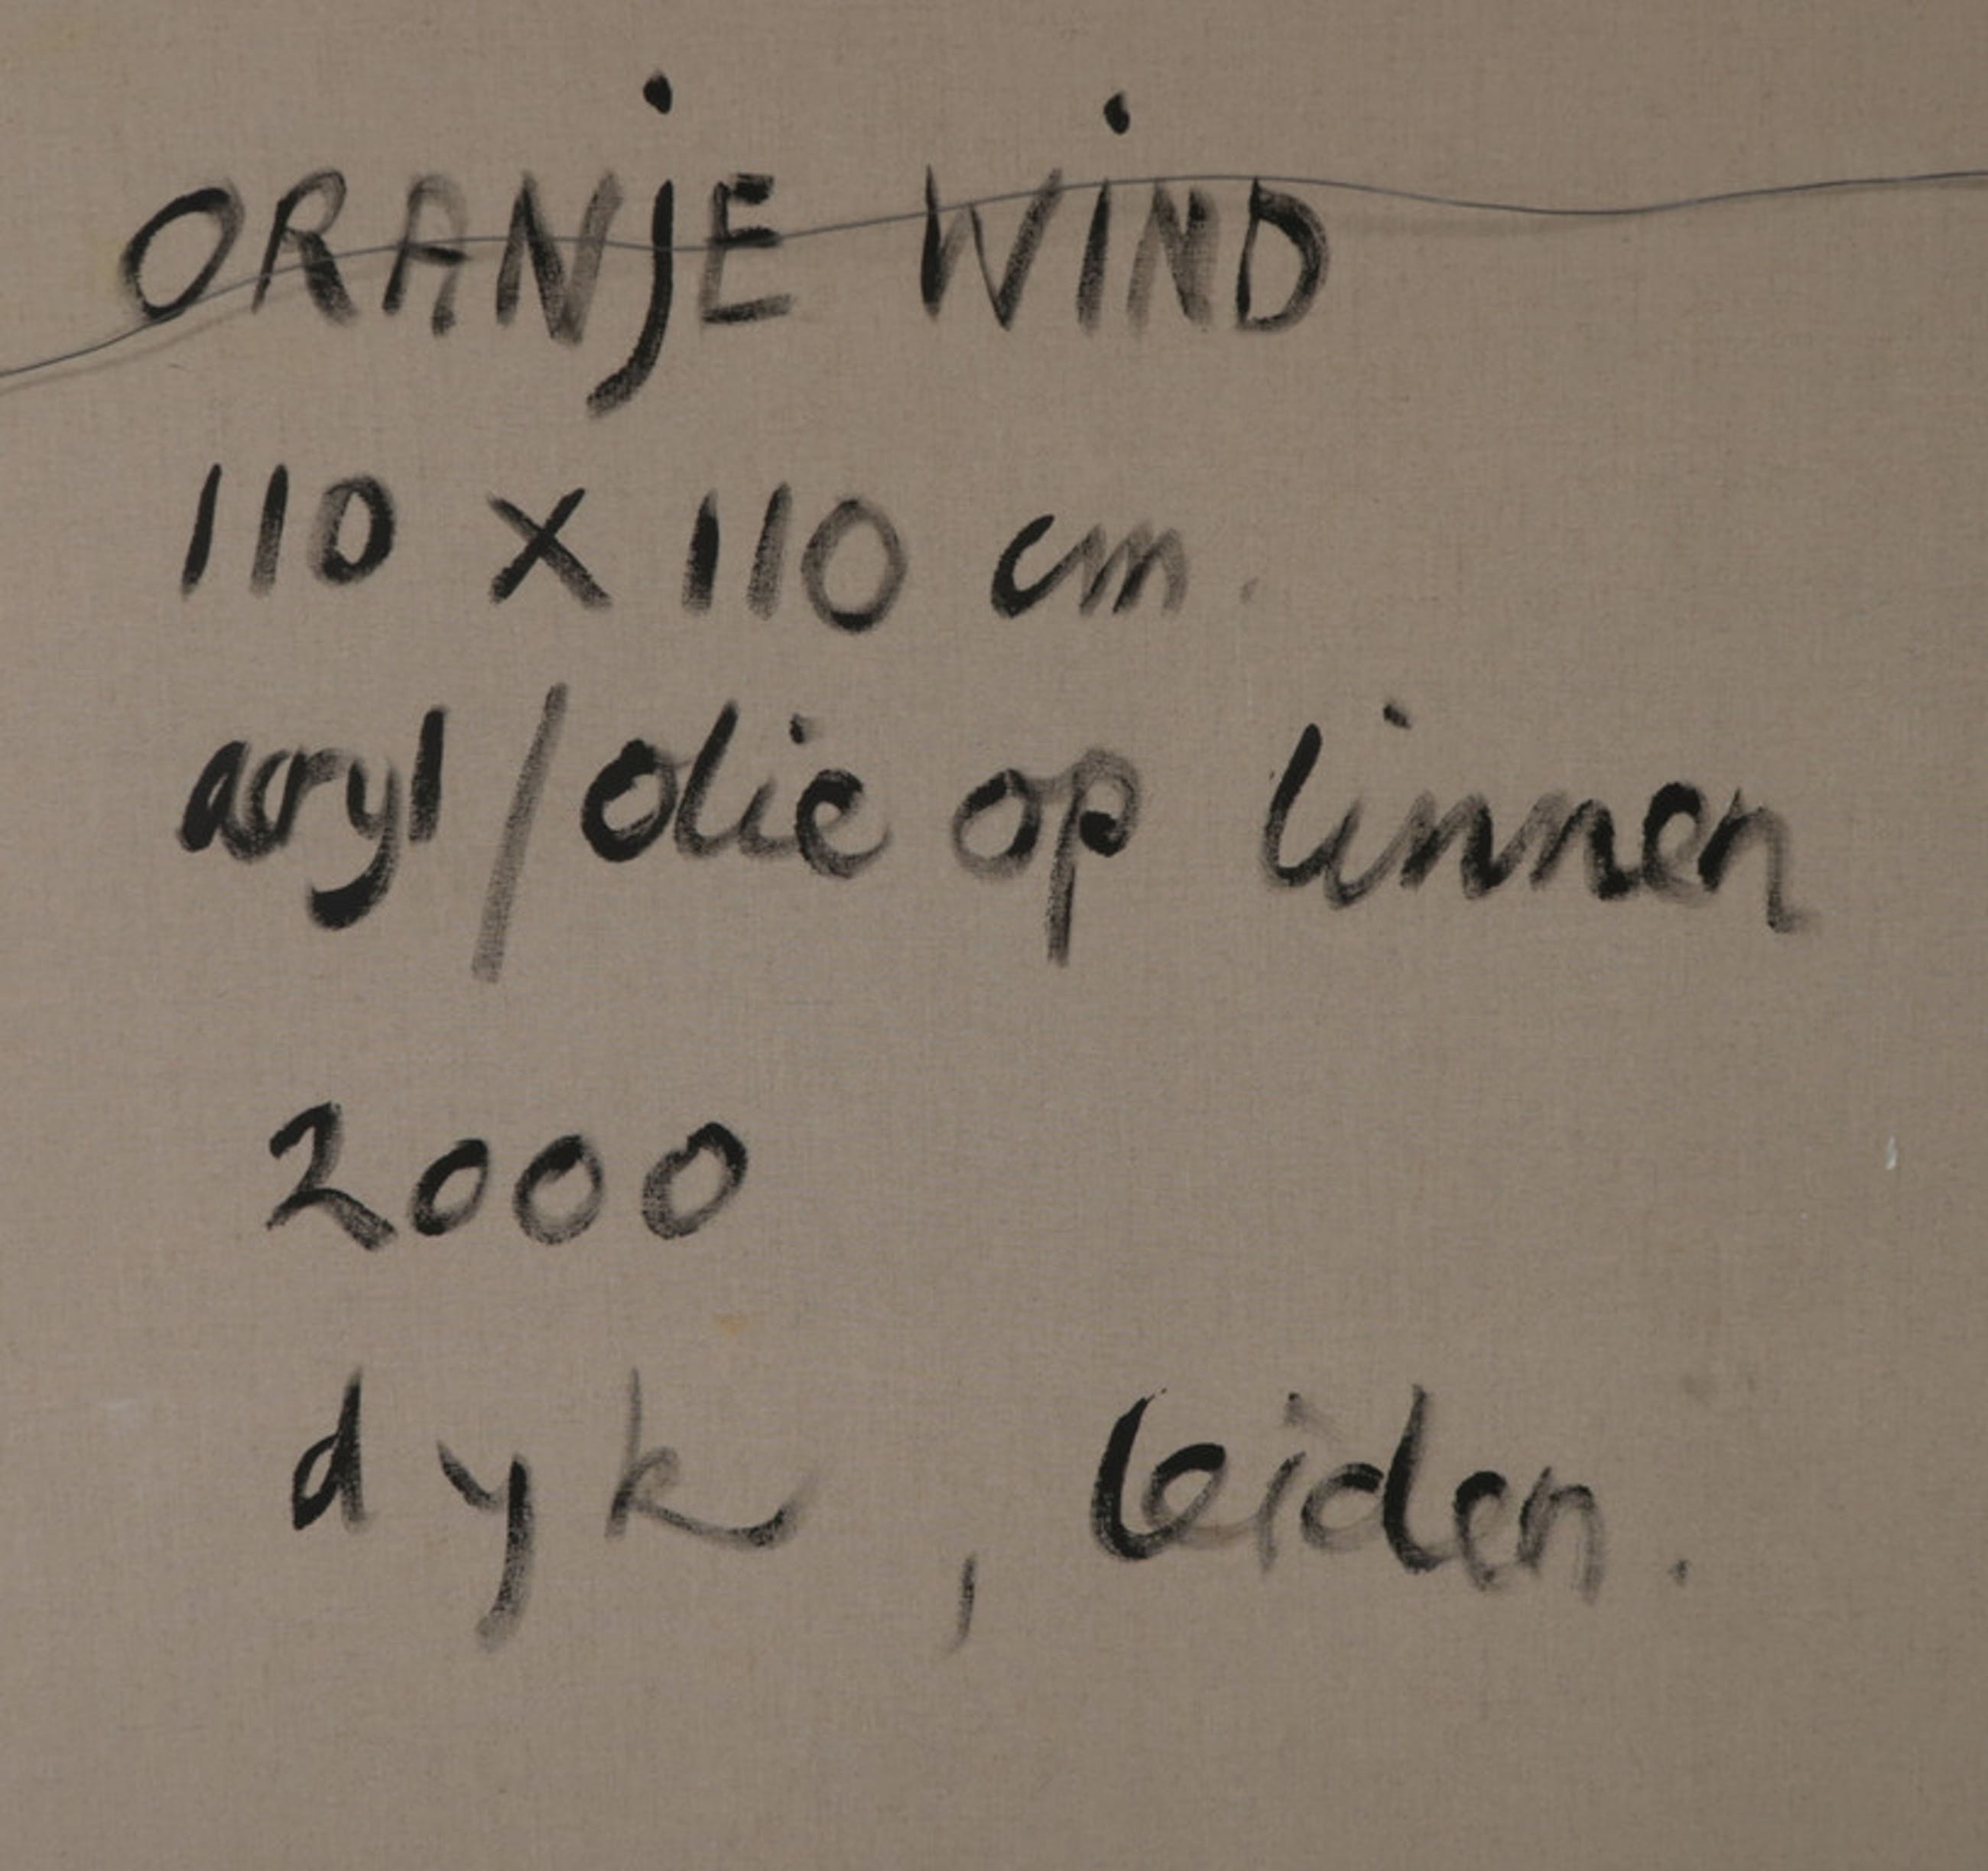 ORANjE WiND
110 x 110 cm.
acryl/olie op linnen
2000
dyk, leiden.